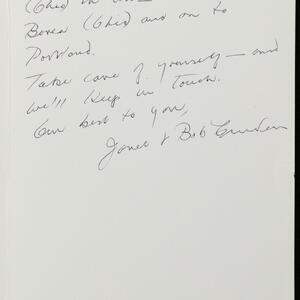 (Ohio) in
Berea (Ohio) and on to
Portland.
Take care of yourself — and
we'll keep in touch.
Our best to you,
Janet & Bob